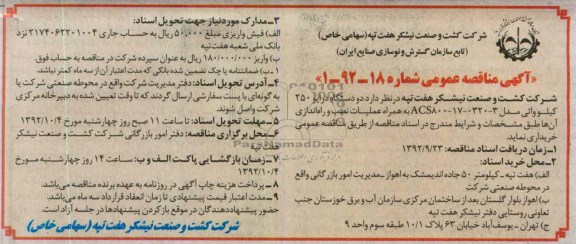 شرکت کشت و صنعت نیشکر هفت تپه (سهامی خاص)
(تابع سازمان گسترش و نوسازی صنایع ایران)
«آگهی مناقصه عمومی شماره ۱۸-۹۲-۱»
شرکت کشت و صنعت نیشکر هفت تپه در نظر دارد دو دستگاه درایو ۲۵۰
کیلو واتی مدل ACS۸۰۰-۱۷-۰۳۲۰-۳ به همراه عملیات نصب و راه اندازی
آن‌ها طبق مشخصات و شرایط مندرج در اسناد مناقصه از طریق مناقصه عمومی
خریداری نماید.
۱- زمان دریافت اسناد مناقصه: ۱۳۹۲/۹/۲۳
۲- محل خرید اسناد:
الف) هفت تپه - کیلومتر ۵۰ جاده اندیمشک به اهواز - مدیریت امور بازرگانی واقع
در محوطه صنعتی شرکت
ب) اهواز بلوار گلستان بعد از ساختمان مرکزی سازمان آب و برق خوزستان جنب
تعاونی روستایی دفتر نیشکر هفت تپه
ج) تهران - یوسف آباد خیابان ۶۳ پلاک ۱۰/۱ طبقه سوم واحد ۹
۳- مدارک مورد نیاز جهت تحویل اسناد:
الف) فیش واریزی مبلغ ۵۰,۰۰۰ ریال به حساب جاری ۲۱۷۴۰۶۲۲۰۱۰۰۴ نزد
بانک ملی شعبه هفت تپه
ب) واریز ۱۸۰/۰۰۰/۰۰۰ ریال به عنوان سپرده شرکت در مناقصه به حساب فوق.
۱ ب) ضمانتنامه یا چک تضمین شده بانکی که مدت اعتبار آن از سه ماه کمتر نباشد.
۴- آدرس تحویل اسناد: دفتر مدیریت شرکت واقع در محوطه صنعتی شرکت یا
به گونه‌ای با پست سفارشی ارسال گردند که تا وقت تعیین شده به دبیرخانه مرکزی
شرکت واصل شوند.
۵- مهلت تحویل اسناد: تا ساعت ۱۱ صبح روز چهارشنبه مورخ ۱۳۹۲/۱۰/۴
۶- محل برگزاری مناقصه: دفتر امور بازرگانی شرکت کشت و صنعت نیشکر هفت تپه
۷- زمان بازگشایی پاکت الف و ب: ساعت ۱۴ روز چهارشنبه مورخ
۱۳۹۲/۱۰/۴
۸- پرداخت هزینه چاپ آگهی در روزنامه به عهده برنده مناقصه می‌باشد.
۹- مدت اعتبار قیمت پیشنهادی تا زمان انعقاد قرارداد سه ماه می‌باشد.
حضور پیشنهاددهندگان در موقع باز کردن پیشنهادها در جلسه آزاد است.
شرکت کشت و صنعت نیشکر هفت تپه (سهامی خاص)